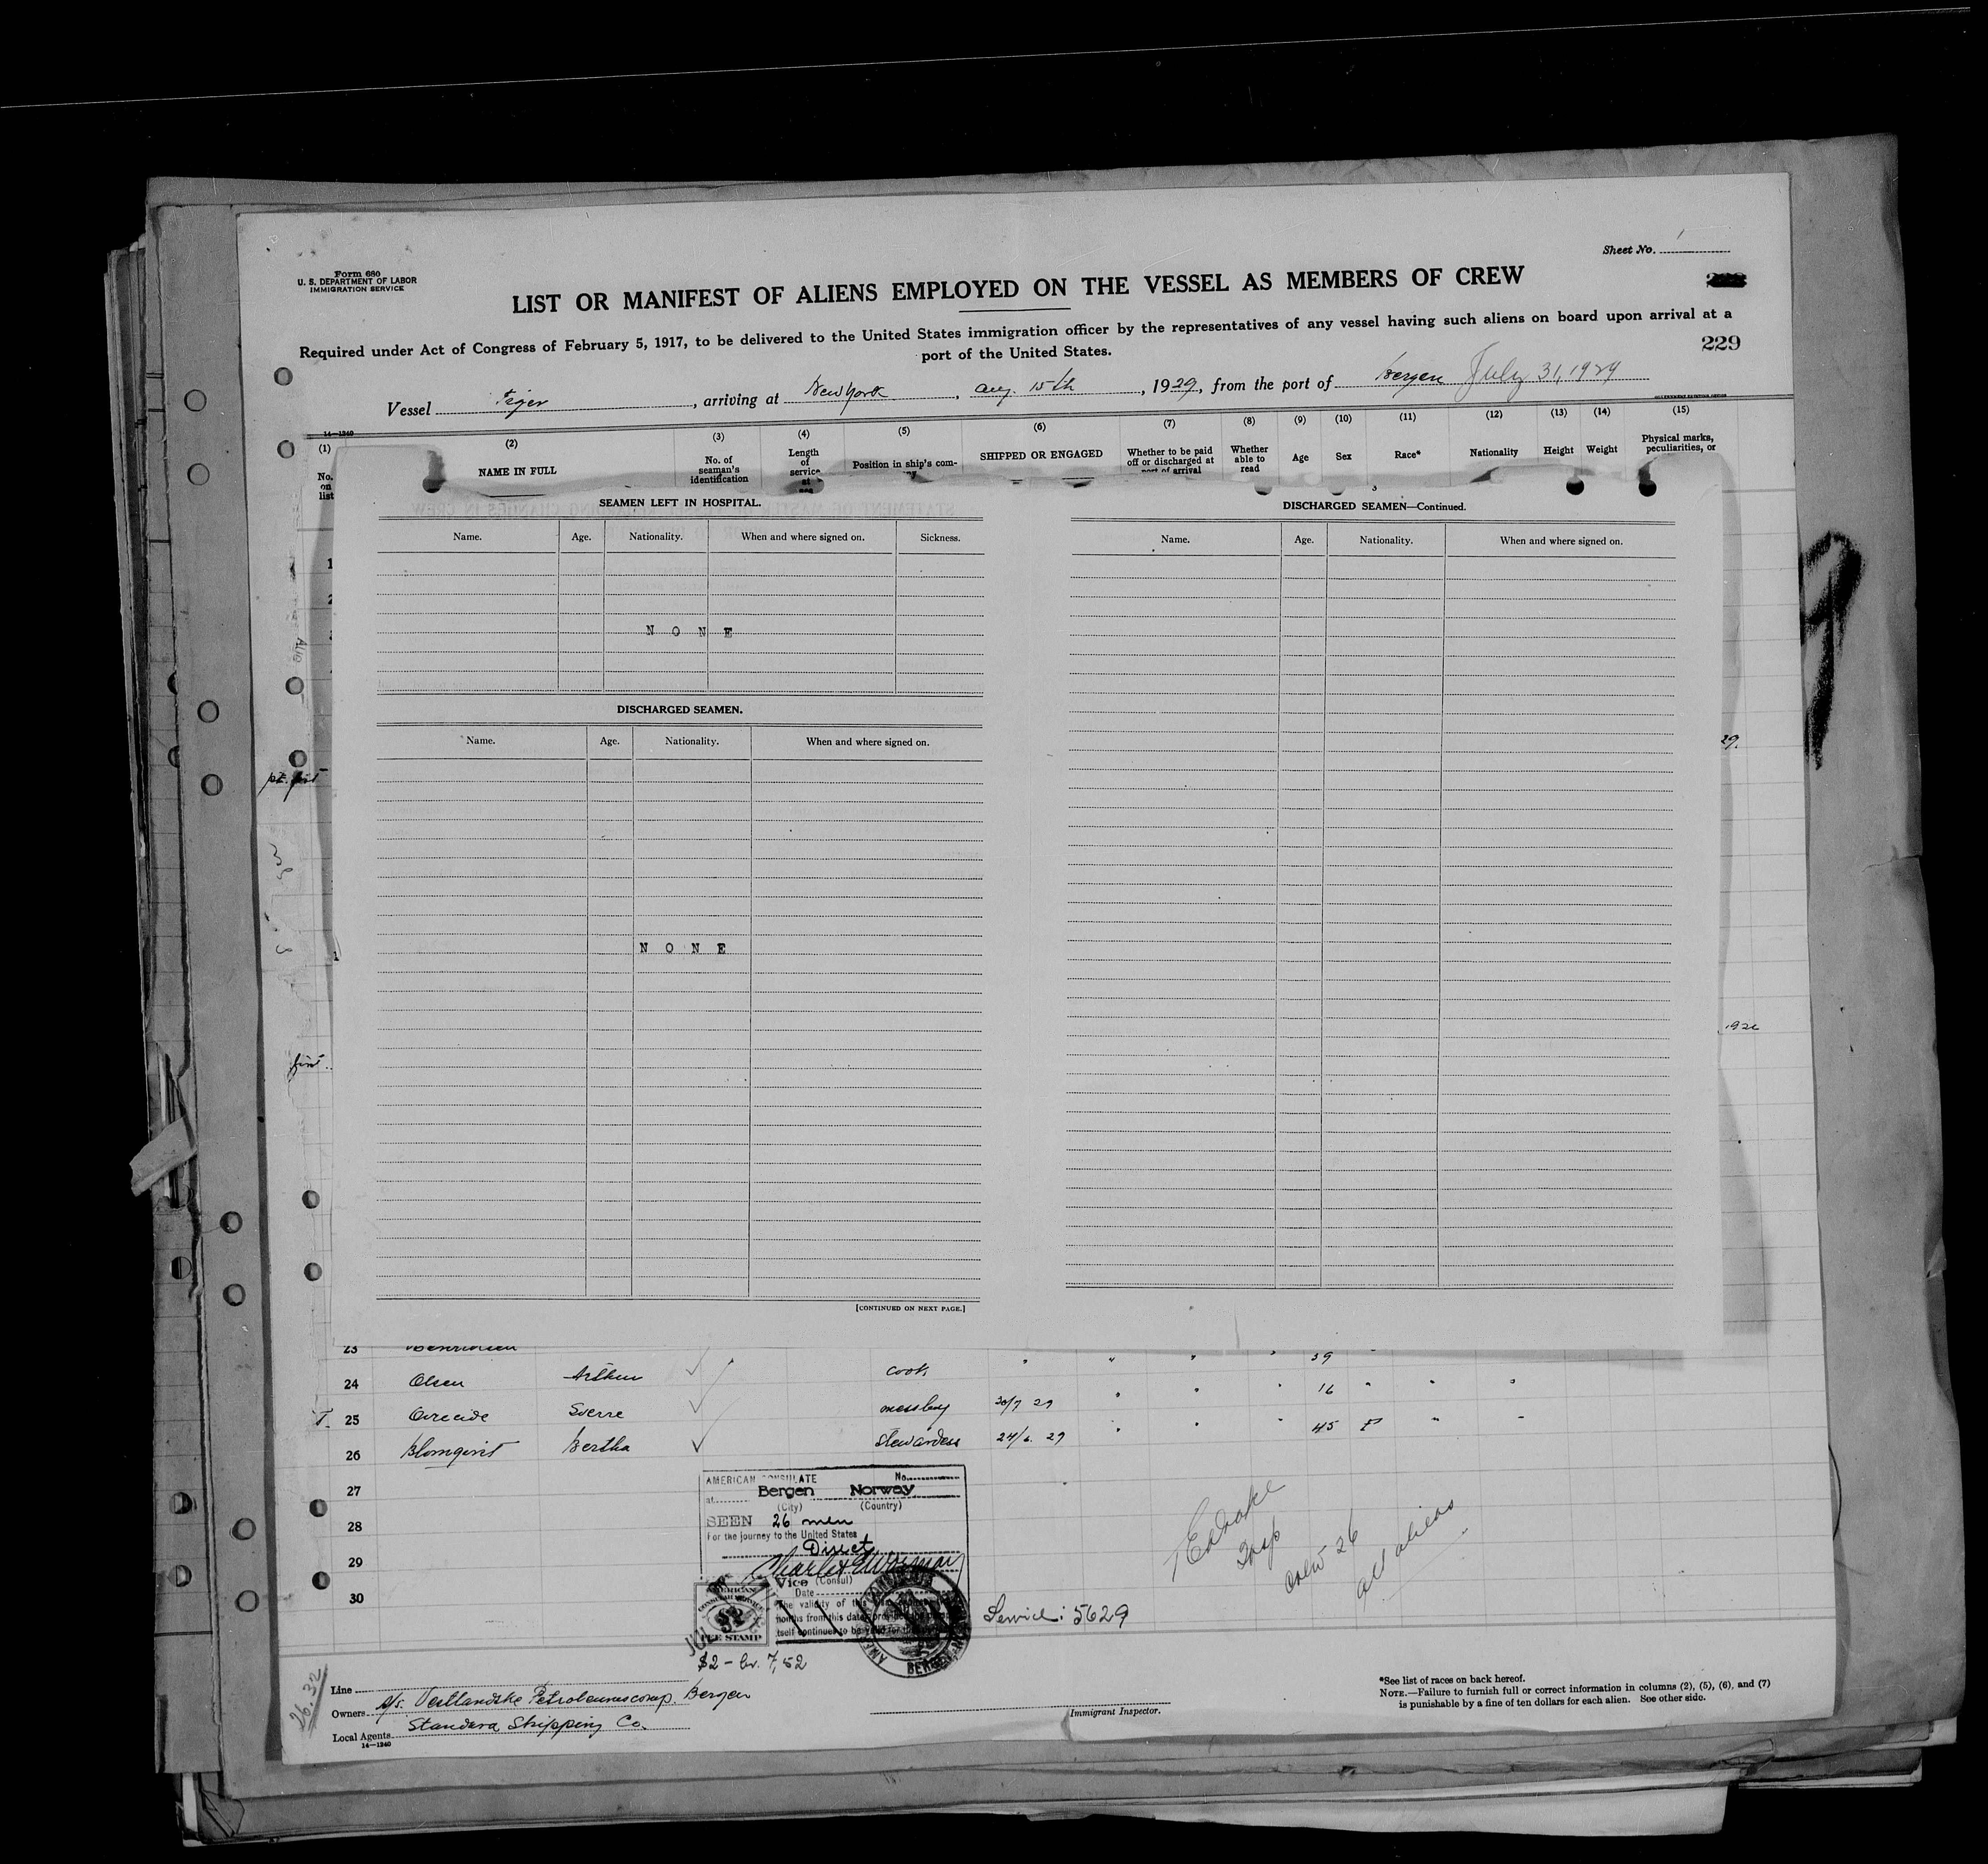 Sheet No. 1
Form 680
U. S. DEPARTMENT OF LABOR
IMMIGRATION SERVICE
LIST OR MANIFEST OF ALIENS EMPLOYED ON THE VESSEL AS MEMBERS OF CREW
Required under Act of Congress of February 5, 1917, to be delivered to the United States immigration officer by the representatives of any vessel having such aliens on board upon arrival at a
port of the United States.
229
Vessel Tiger, arriving at New York, Aug. 15th, 1929, from the port of Bergen July 31, 1929
14—1240
(1) (2) (3) (4) (5) (6) (7) (8) (9) (10) (11) (12) (13) (14) (15)
No. on list
NAME IN FULL
No. of seaman's identification
Length of service at
Position in ship's com-
SHIPPED OR ENGAGED
Whether to be paid off or discharged at port of arrival
Whether able to read
Age
Sex
Race*
Nationality
Height
Weight
Physical marks, peculiarities, or
SEAMEN LEFT IN HOSPITAL.
Name. Age. Nationality. When and where signed on. Sickness.
NONE
DISCHARGED SEAMEN.
Name. Age. Nationality. When and where signed on.
NONE
[CONTINUED ON NEXT PAGE.]
DISCHARGED SEAMEN—Continued.
Name. Age. Nationality. When and where signed on.
29.
23
39
24 Olsen Arthur cook " " " " 16 " " "
T. 25 Sverre messboy 30/7 29 " " " 45 F " "
26 Blomqvist Bertha Stewardess 24/6. 29
27
28
29
30
AMERICAN CONSULATE No.
at Bergen Norway
(City) (Country)
SEEN 26 men
For the journey to the United States
Direct
Vice (Consul)
Date
The validity of this
months from this date, provided the
itself continues to be valid for
AMERICAN
CONSULAR SERVICE
$2
FEE STAMP
JUL 31
BERGEN
Service: 5629
$2 – kr. 7,52
Insp
Crew 26
all aliens
26.32
Line
Owners A/s. Vestlandske Petroleumscomp. Bergen
Local Agents Standard Shipping Co.
14—1240
Immigrant Inspector.
*See list of races on back hereof.
NOTE.—Failure to furnish full or correct information in columns (2), (5), (6), and (7)
is punishable by a fine of ten dollars for each alien. See other side.